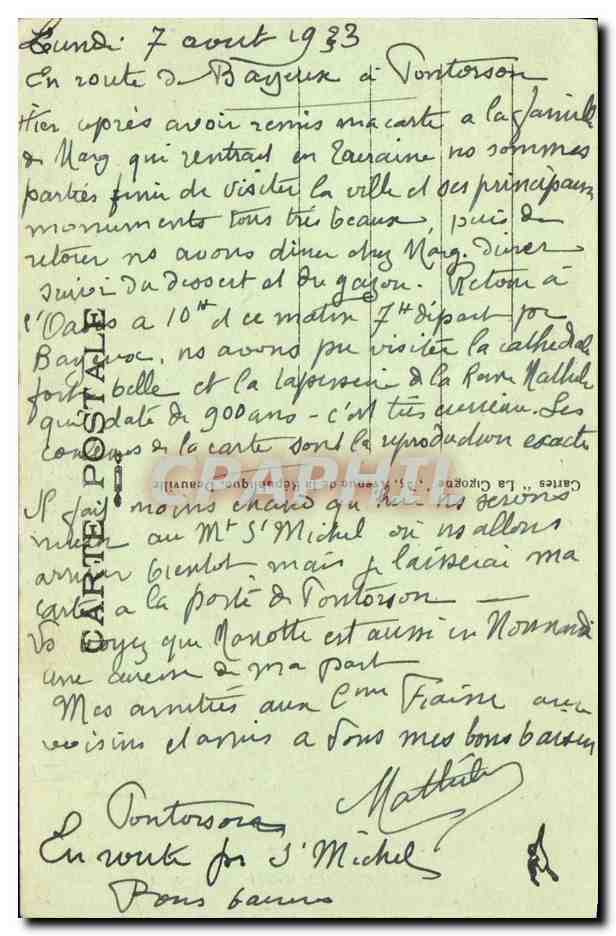 Lundi 7 aout 1933
En route de Bayeux à Pontorson
Hier après avoir remis ma carte a la famille
de Marg qui rentrait en Touraine ns sommes
parties finir de visiter la ville et ses principaux
monuments tous très beaux, puis de
retour ns avons diner chez Marg. Diner
suivi du dessert et du gazon. Retour à
l'Oasis a 10H et ce matin 7H départ pr
Bayeux, ns avons pu visiter la cathédrale
fort belle et la tapisserie de la Reine Mathilde
qui date de 900 ans - c'est très curieux. Les
de la carte sont la reproduction exacte
Il fait moins chaud qu'hier ns serons
mieux au Mt St Michel où ns allons
arriver bientot mais je laisserai ma
carte a la poste de Pontorson —
Vs voyez que est aussi en Normandie
une de ma part
Mes amitiés aux Cme aux
voisins et amis a vous mes bons baisers
Mathilde
Pontorson
En route pr St Michel
Bons baisers
CARTE POSTALE
Cartes "La Cigogne", Avenue de la République, Deauville
CPAPHIL